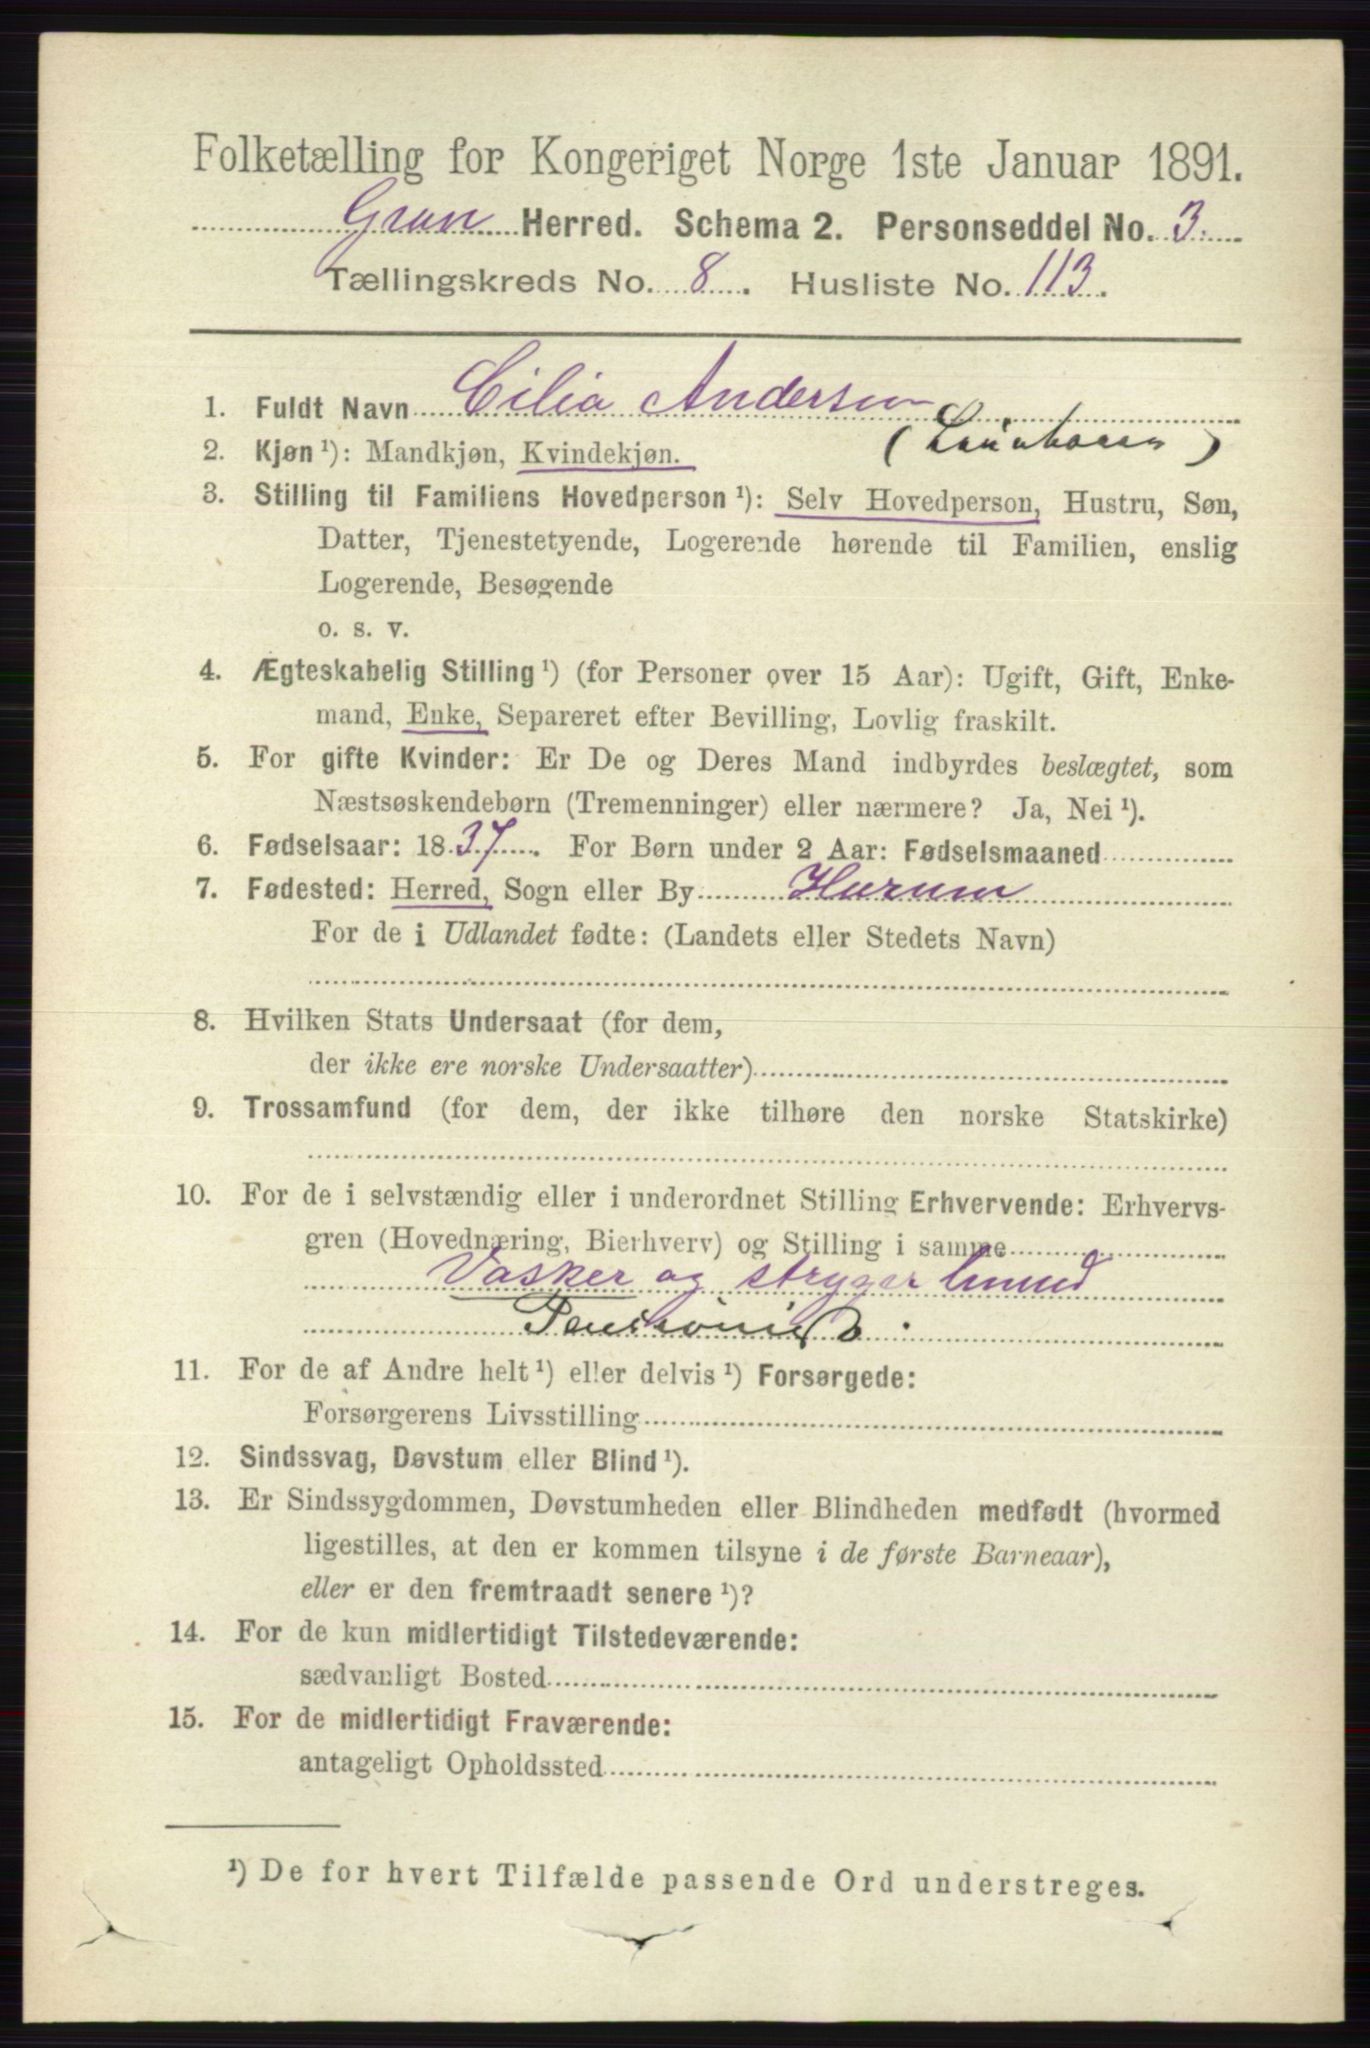 Folketælling for Kongeriget Norge 1ste Januar 1891.
Gran Herred. Schema 2. Personseddel No. 3.
Tællingskreds No. 8. Husliste No. 113.
1. Fuldt Navn Cilia Andersen
2. Kjøn ¹): Mandkjøn, Kvindekjøn.
3. Stilling til Familiens Hovedperson ¹): Selv Hovedperson, Hustru, Søn,
Datter, Tjenestetyende, Logerende hørende til Familien, enslig
Logerende, Besøgende
o. s. v.
4. Ægteskabelig Stilling ¹) (for Personer over 15 Aar): Ugift, Gift, Enke-
mand, Enke, Separeret efter Bevilling, Lovlig fraskilt.
5. For gifte Kvinder: Er De og Deres Mand indbyrdes beslægtet, som
Næstsøskendebørn (Tremenninger) eller nærmere? Ja, Nei ¹).
6. Fødselsaar: 1837. For Børn under 2 Aar: Fødselsmaaned
7. Fødested: Herred, Sogn eller By Hurum
For de i Udlandet fødte: (Landets eller Stedets Navn)
8. Hvilken Stats Undersaat (for dem,
der ikke ere norske Undersaatter)
9. Trossamfund (for dem, der ikke tilhøre den norske Statskirke)
10. For de i selvstændig eller i underordnet Stilling Erhvervende: Erhvervs-
gren (Hovednæring, Bierhverv) og Stilling i samme
Vasker og stryger
11. For de af Andre helt ¹) eller delvis ¹) Forsørgede:
Forsørgerens Livsstilling
12. Sindssvag, Døvstum eller Blind ¹).
13. Er Sindssygdommen, Døvstumheden eller Blindheden medfødt (hvormed
ligestilles, at den er kommen tilsyne i de første Barneaar),
eller er den fremtraadt senere ¹)?
14. For de kun midlertidigt Tilstedeværende:
sædvanligt Bosted
15. For de midlertidigt Fraværende:
antageligt Opholdssted
¹) De for hvert Tilfælde passende Ord understreges.